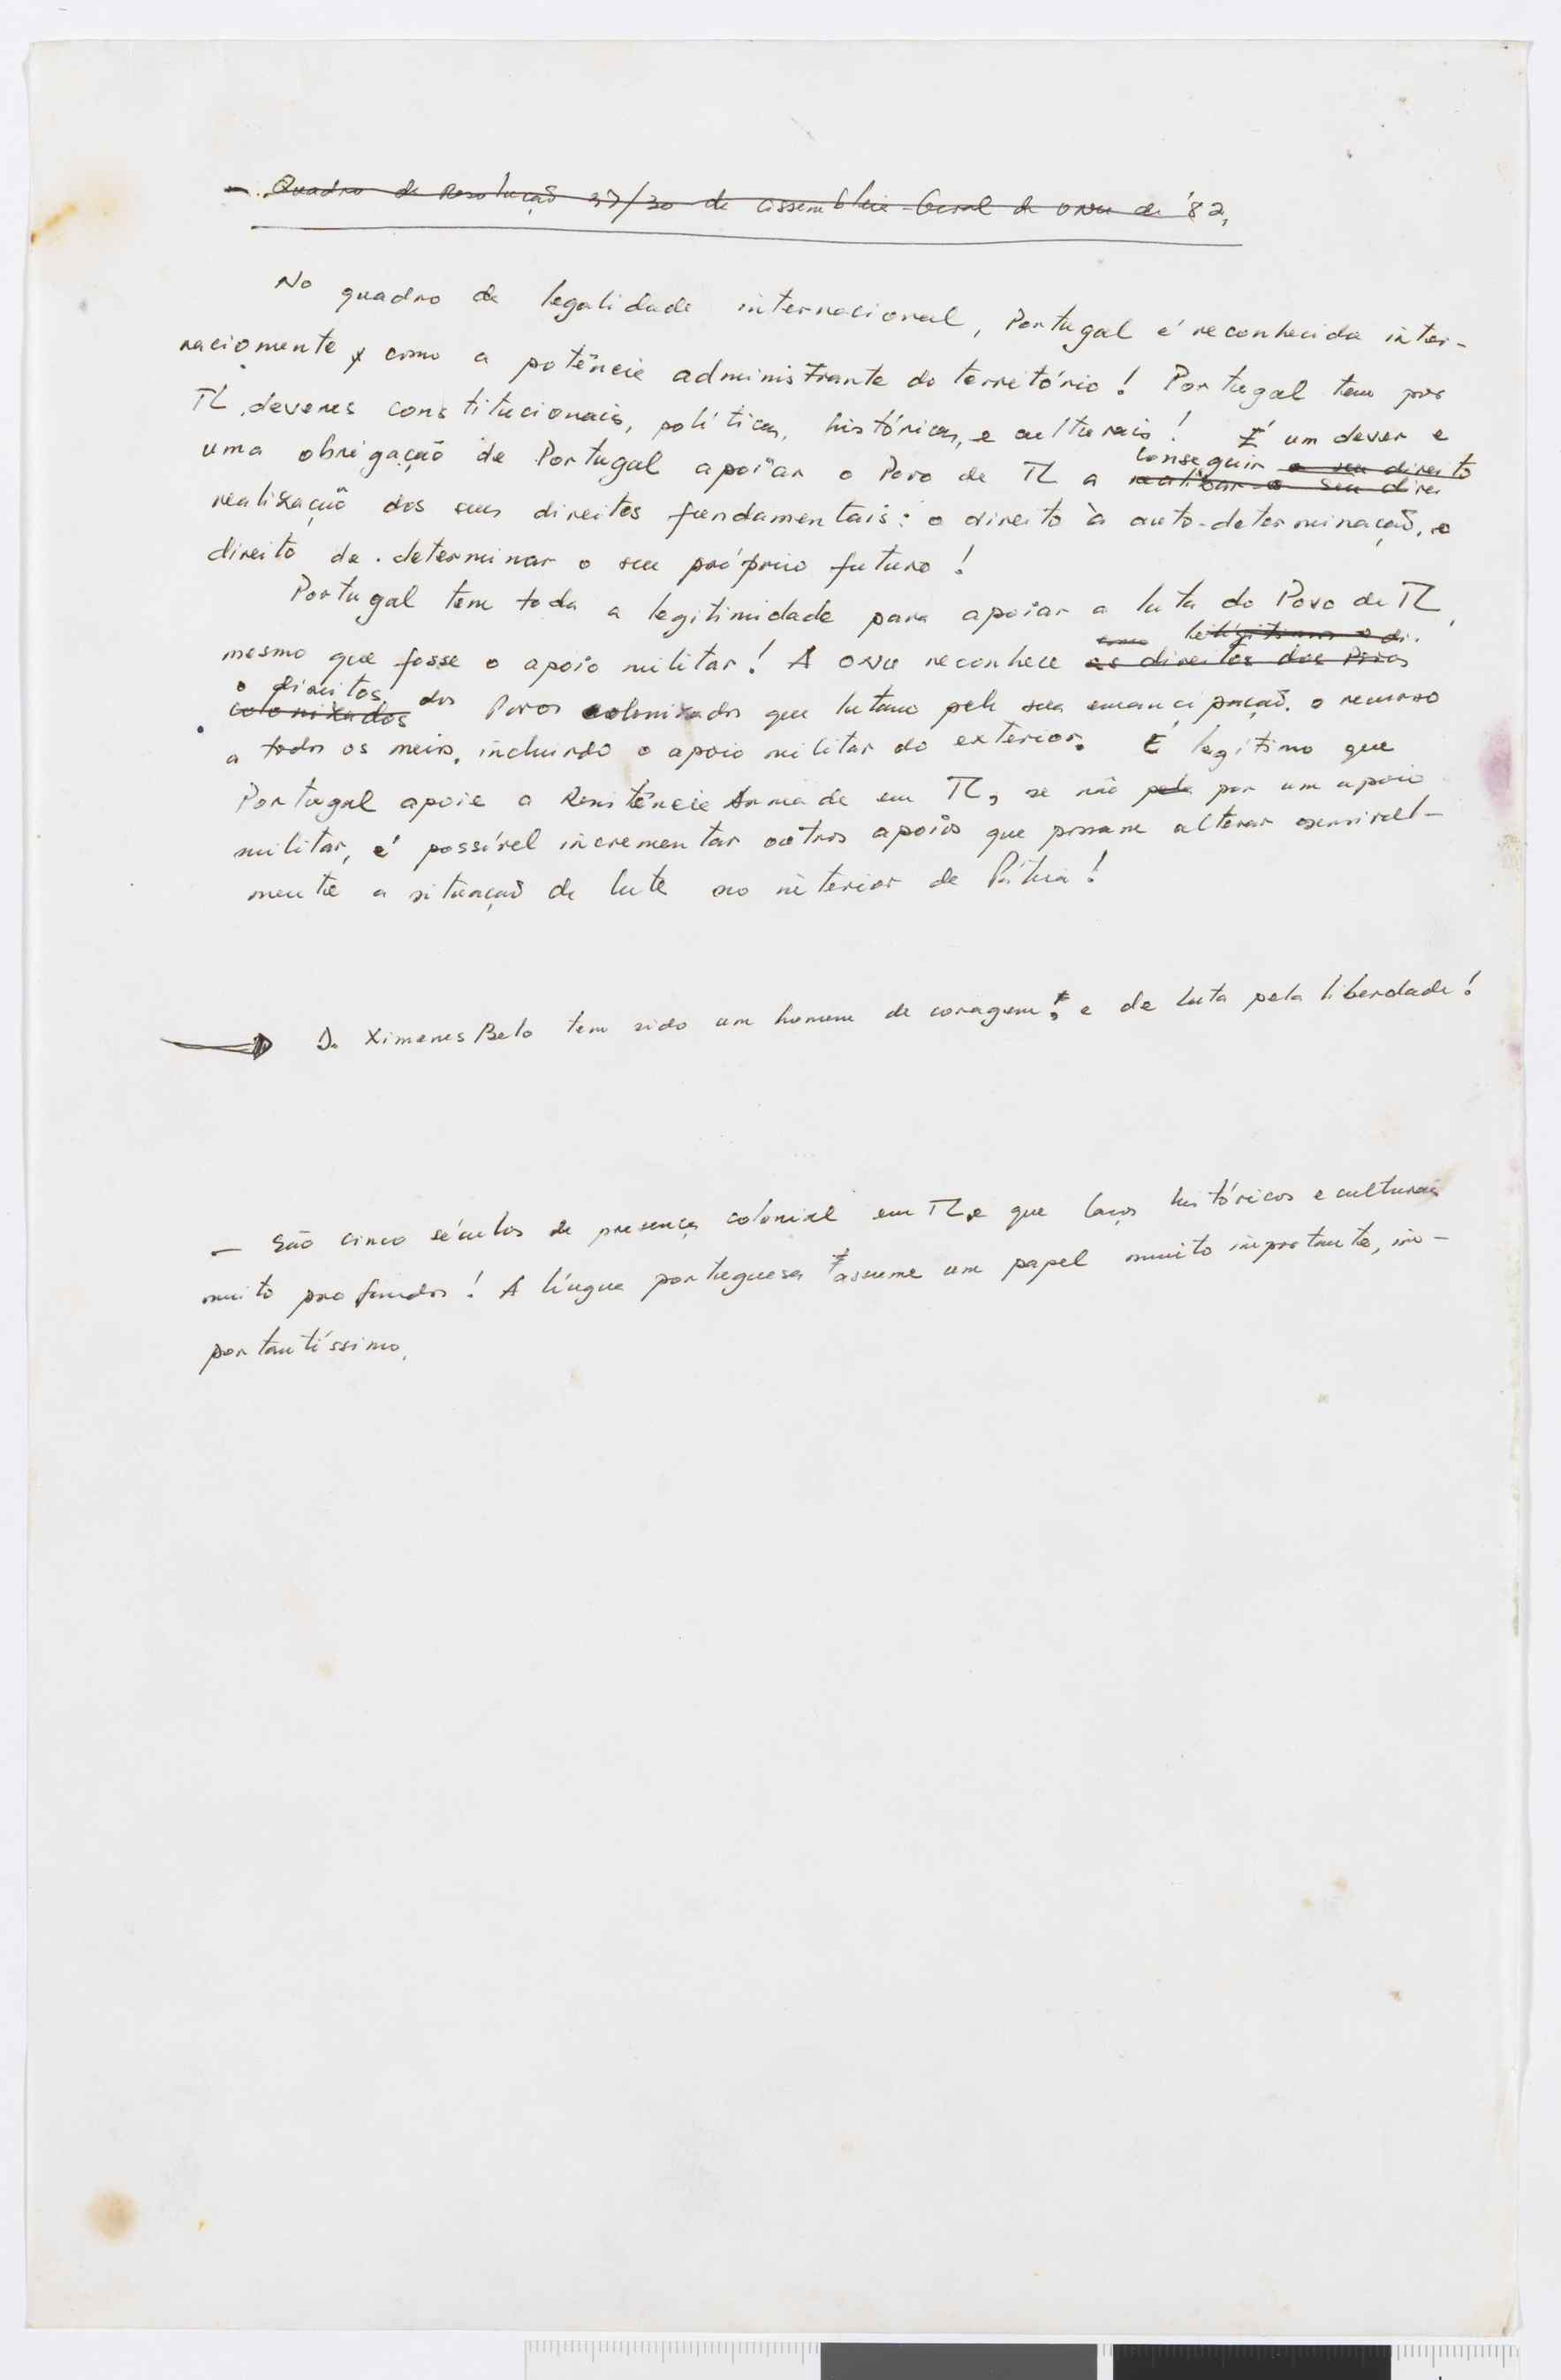 - Quadro da Resolução 37/30 da Assembleia Geral da ONU de '82,
No quadro da legalidade internacional, Portugal é reconhecida inter-
naciomente como a potência administrante do território! Portugal tem por
TL deveres constitucionais, políticos, históricos, e culturais! É um dever e
conseguir o seu direito
uma obrigação de Portugal apoiar o Povo de TL a realizar o seu direi
realização dos seus direitos fundamentais: o direito à auto-determinação, o
direito de determinar o seu próprio futuro!
Portugal tem toda a legitimidade para apoiar a luta do Povo de TL,
mesmo que fosse o apoio militar! A ONU reconhece os direitos dos Povos
o direitos dos
colonizados Povos colonizados que lutam pela sua emancipação, o recurso
a todos os meios, incluindo o apoio militar do exterior. É legítimo que
Portugal apoie a Resistência Armada em TL, se não pela por um apoio
militar, é possível incrementar outros apoios que possam alterar sensivel-
mente a situação da luta no interior da Pátria!
D. Ximenes Belo tem sido um homem de coragem, e de luta pela liberdade!
- São cinco séculos de presença colonial em TL e que laços históricos e culturais
muito profundos! A língua portuguesa assume um papel muito importante, im-
portantíssimo.